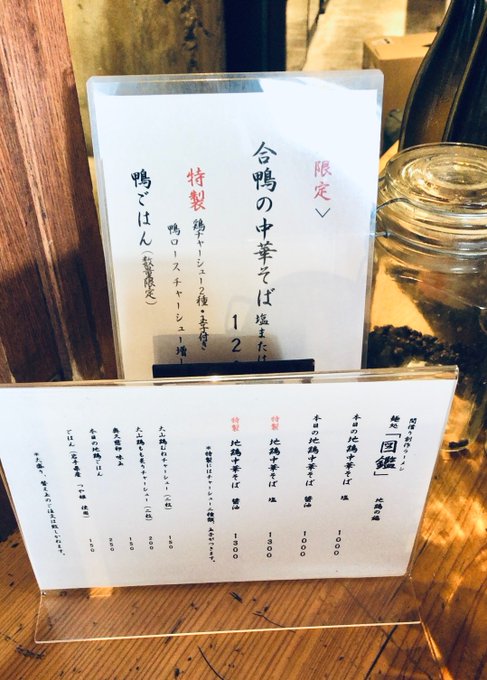 限定
合鴨の中華そば 塩または
特製 鶏チャーシュー2種・玉子付き
鴨ロースチャーシュー増し
鴨ごはん（数量限定）
間借り創作らーメン
麺処「図鑑」 地鶏の塩
本日の地鶏中華そば 塩 1000
本日の地鶏中華そば 醤油 1000
特製 地鶏中華そば 塩 1300
特製 地鶏中華そば 醤油 1300
＊特製にはチャーシュー二種類、玉子がつきます。
大山鶏むねチャーシュー（二枚） 150
大山鶏もも炙りチャーシュー（二枚） 200
奥久慈卵 味玉 150
本日の地鶏ごはん 250
ごはん（岩手県産 つや姫 使用） 150
＊大盛り、替え玉のご注文は致しかねます。